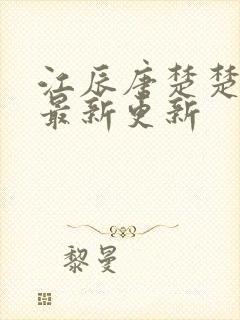 江辰唐楚楚
最新更新
黎曼